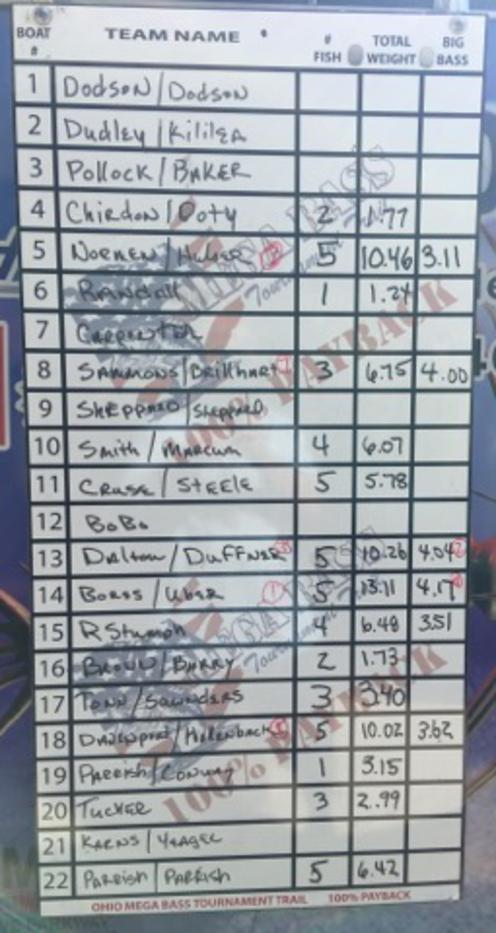 BOAT # TEAM NAME # FISH TOTAL WEIGHT BIG BASS
1 Dodson/Dodson
2 Dudley/Kililea
3 Pollock/BAKER
4 Chirdon/Doty 2 1.77
5 Normen/ 5 10.46 3.11
6 Randall 1 1.24
7 Carpenter
8 Sammons/Brillhart 3 6.75 4.00
9 Sheppard/Sheppard
10 Smith/Marcum 4 6.07
11 Cruse/STEELE 5 5.78
12 BoBo
13 Dalton/DuFFNER 5 10.26 4.04
14 Boros/Uber 1 5 13.11 4.17
15 R Stumph 4 6.48 3.51
16 Brown/Barry 2 1.73
17 Tonn/Saunders 3 3.40
18 Davenport/Holenback 5 10.02 3.62
19 Parrish/Conway 1 3.15
20 Tucker 3 2.99
21 Karns/Yeager
22 Parrish/Parrish 5 6.42
MEGA BASS
Tournament Trail
100% PAYBACK
MEGA BASS
Tournament
100% PAYBACK
OHIO MEGA BASS TOURNAMENT TRAIL 100% PAYBACK